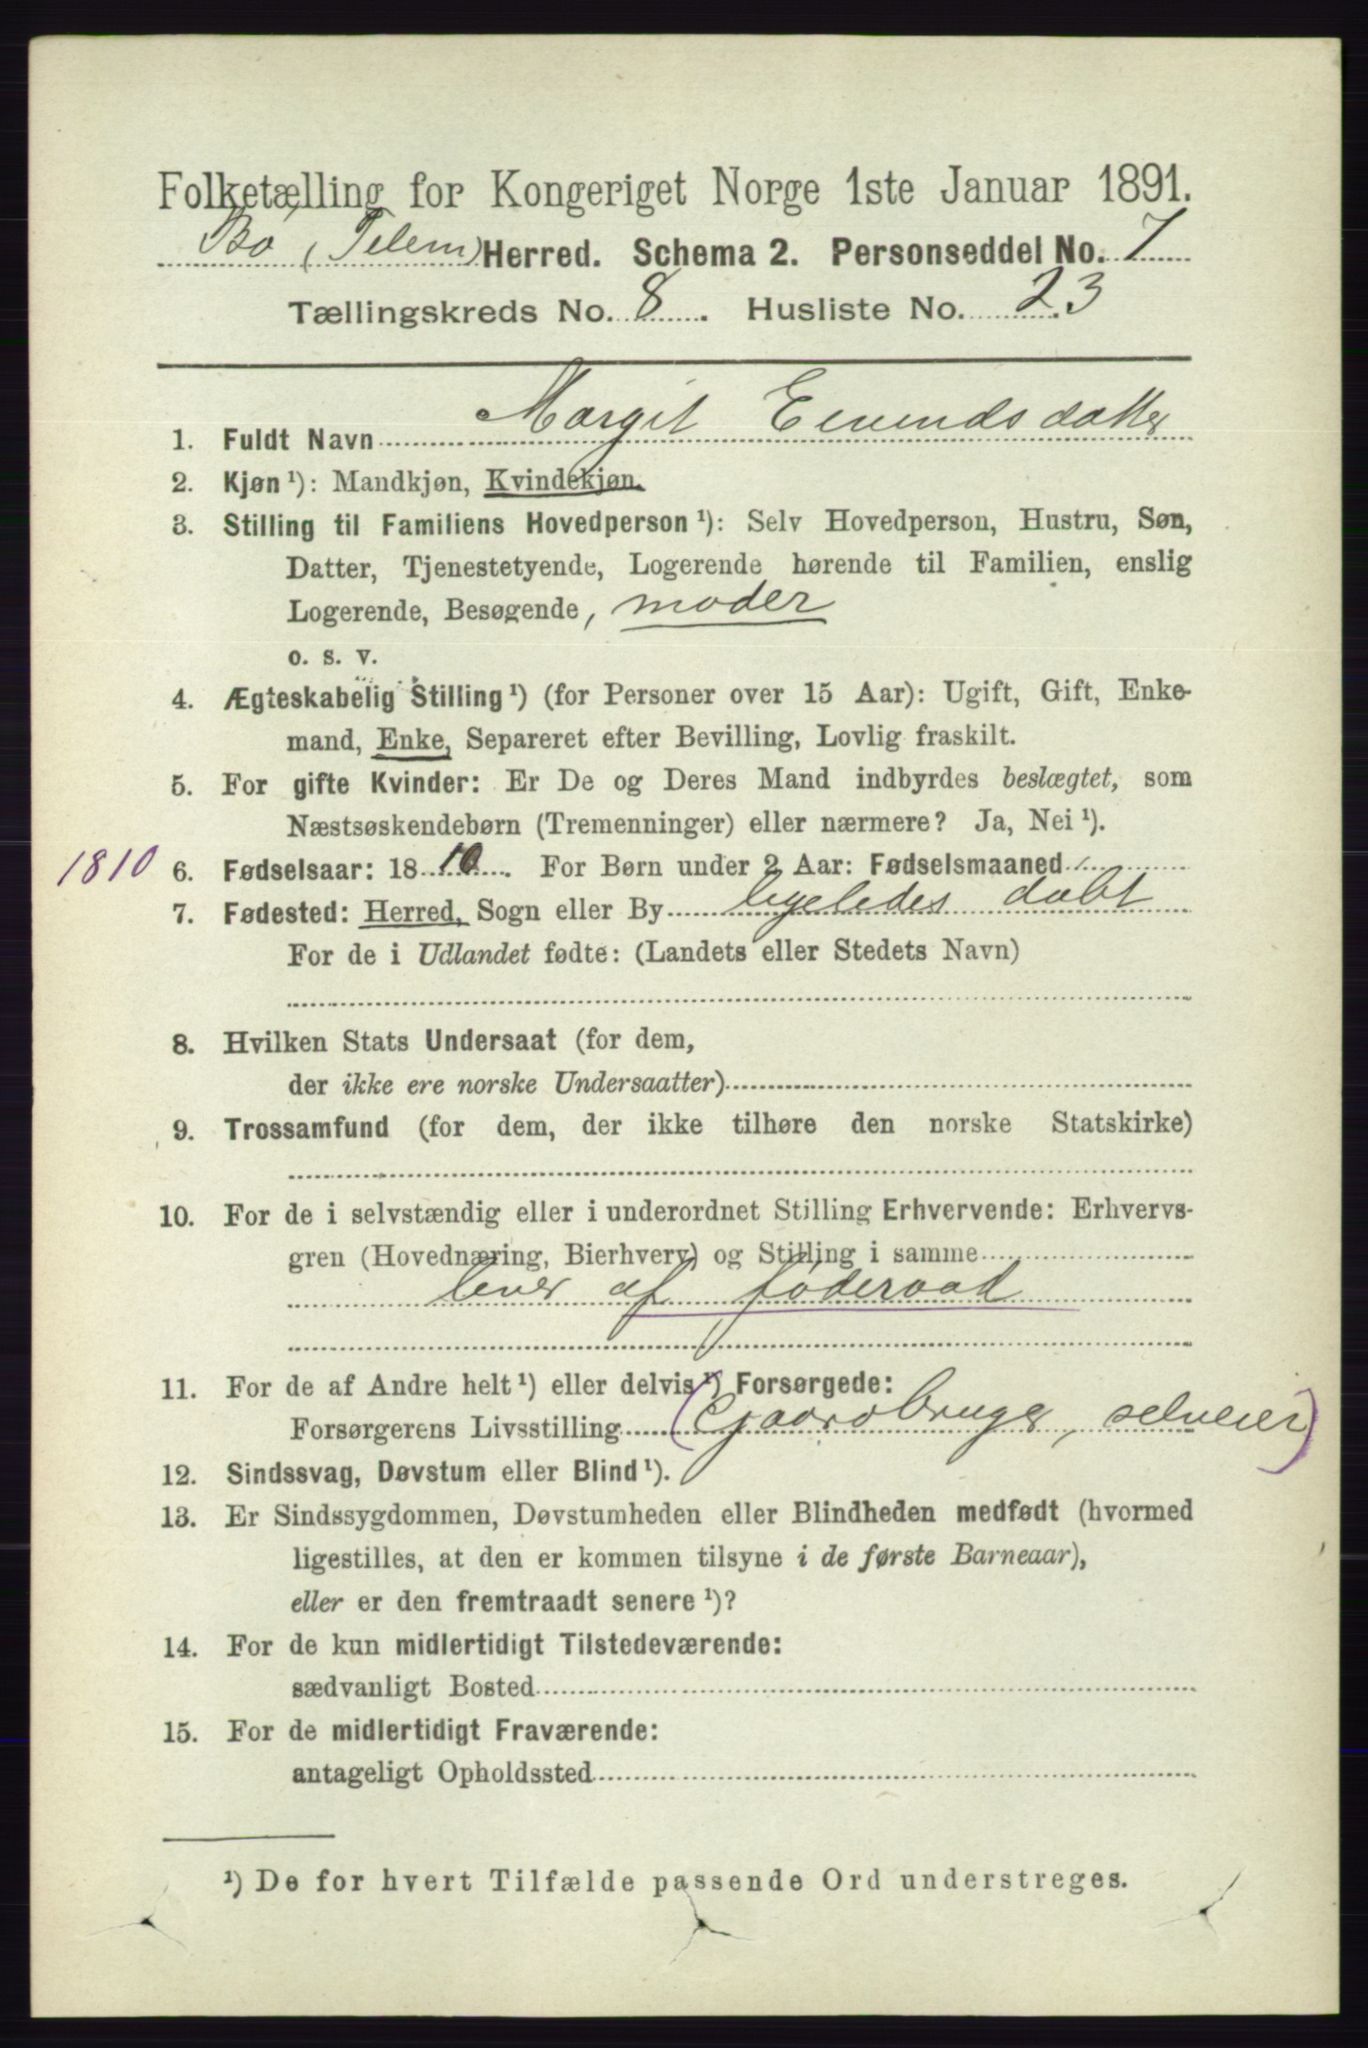 Folketælling for Kongeriget Norge 1ste Januar 1891.
Bø (Telem) Herred. Schema 2. Personseddel No. 7
Tællingskreds No. 8. Husliste No. 23
1. Fuldt Navn Margit Eivindsdatter
2. Kjøn ¹): Mandkjøn, Kvindekjøn.
3. Stilling til Familiens Hovedperson ¹): Selv Hovedperson, Hustru, Søn,
Datter, Tjenestetyende, Logerende hørende til Familien, enslig
Logerende, Besøgende, moder
o. s. v.
4. Ægteskabelig Stilling ¹) (for Personer over 15 Aar): Ugift, Gift, Enke-
mand, Enke, Separeret efter Bevilling, Lovlig fraskilt.
5. For gifte Kvinder: Er De og Deres Mand indbyrdes beslægtet, som
Næstsøskendebørn (Tremenninger) eller nærmere? Ja, Nei ¹).
1810 6. Fødselsaar: 18 10. For Børn under 2 Aar: Fødselsmaaned
7. Fødested: Herred, Sogn eller By ligeledes døbt
For de i Udlandet fødte: (Landets eller Stedets Navn)
8. Hvilken Stats Undersaat (for dem,
der ikke ere norske Undersaatter)
9. Trossamfund (for dem, der ikke tilhøre den norske Statskirke)
10. For de i selvstændig eller i underordnet Stilling Erhvervende: Erhvervs-
gren (Hovednæring, Bierhverv) og Stilling i samme
lever af føderaad
11. For de af Andre helt ¹) eller delvis ¹) Forsørgede:
Forsørgerens Livsstilling (Gaardbruger, selveier)
12. Sindssvag, Døvstum eller Blind ¹).
13. Er Sindssygdommen, Døvstumheden eller Blindheden medfødt (hvormed
ligestilles, at den er kommen tilsyne i de første Barneaar),
eller er den fremtraadt senere ¹)?
14. For de kun midlertidigt Tilstedeværende:
sædvanligt Bosted
15. For de midlertidigt Fraværende:
antageligt Opholdssted
¹) De for hvert Tilfælde passende Ord understreges.